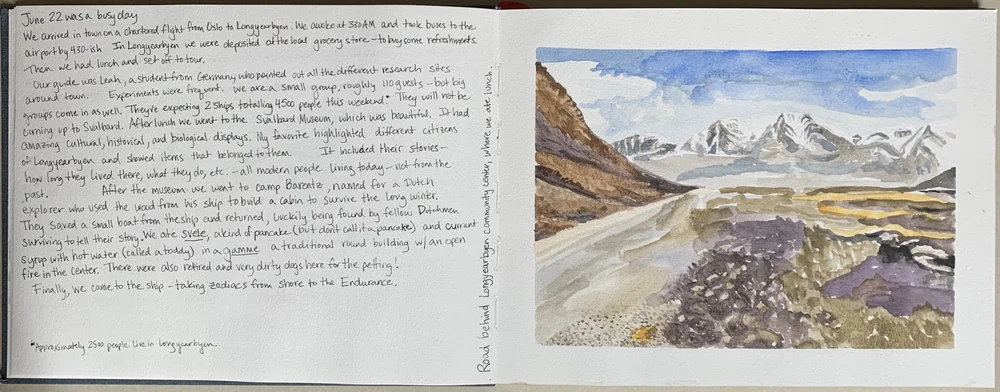 June 22 was a busy day
We arrived in town on a chartered flight from Oslo to Longyearbyen. We awoke at 330AM and took buses to the
airport by 430-ish In Longyearbyen we were deposited at the local grocery store - to buy some refreshments.
Then we had lunch and set off to tour.
Our guide was Leah, a student from Germany who pointed out all the different research sites
around town. Experiments were frequent. We are a small group, roughly 110 guests - but big
groups come in as well. They're expecting 2 ships totalling 4500 people this weekend.* They will not be
coming up to Svalbard. After lunch we went to the Svalbard Museum, which was beautiful. It had
amazing cultural, historical, and biological displays. My favorite highlighted different citizens
of Longyearbyen and showed items that belonged to them. It included their stories -
how long they lived there, what they do, etc. - all modern people living today - not from the
past. After the museum we went to Camp Barentz, named for a Dutch
explorer who used the wood from his ship to build a cabin to survive the long winter.
They saved a small boat from the ship and returned, luckily being found by fellow Dutchmen
surviving to tell their story. We ate svele, a kind of pancake (but don't call it a pancake) and currant
syrup with hot water (called a toddy) in a gamme a traditional round building w/ an open
fire in the center. There were also retired and very dirty dogs here for the petting!
Finally, we came to the ship - taking zodiacs from shore to the Endurance.
*Approximately 2500 people live in Longyearbyen
Road behind Longyearbyen community center, where we ate lunch.